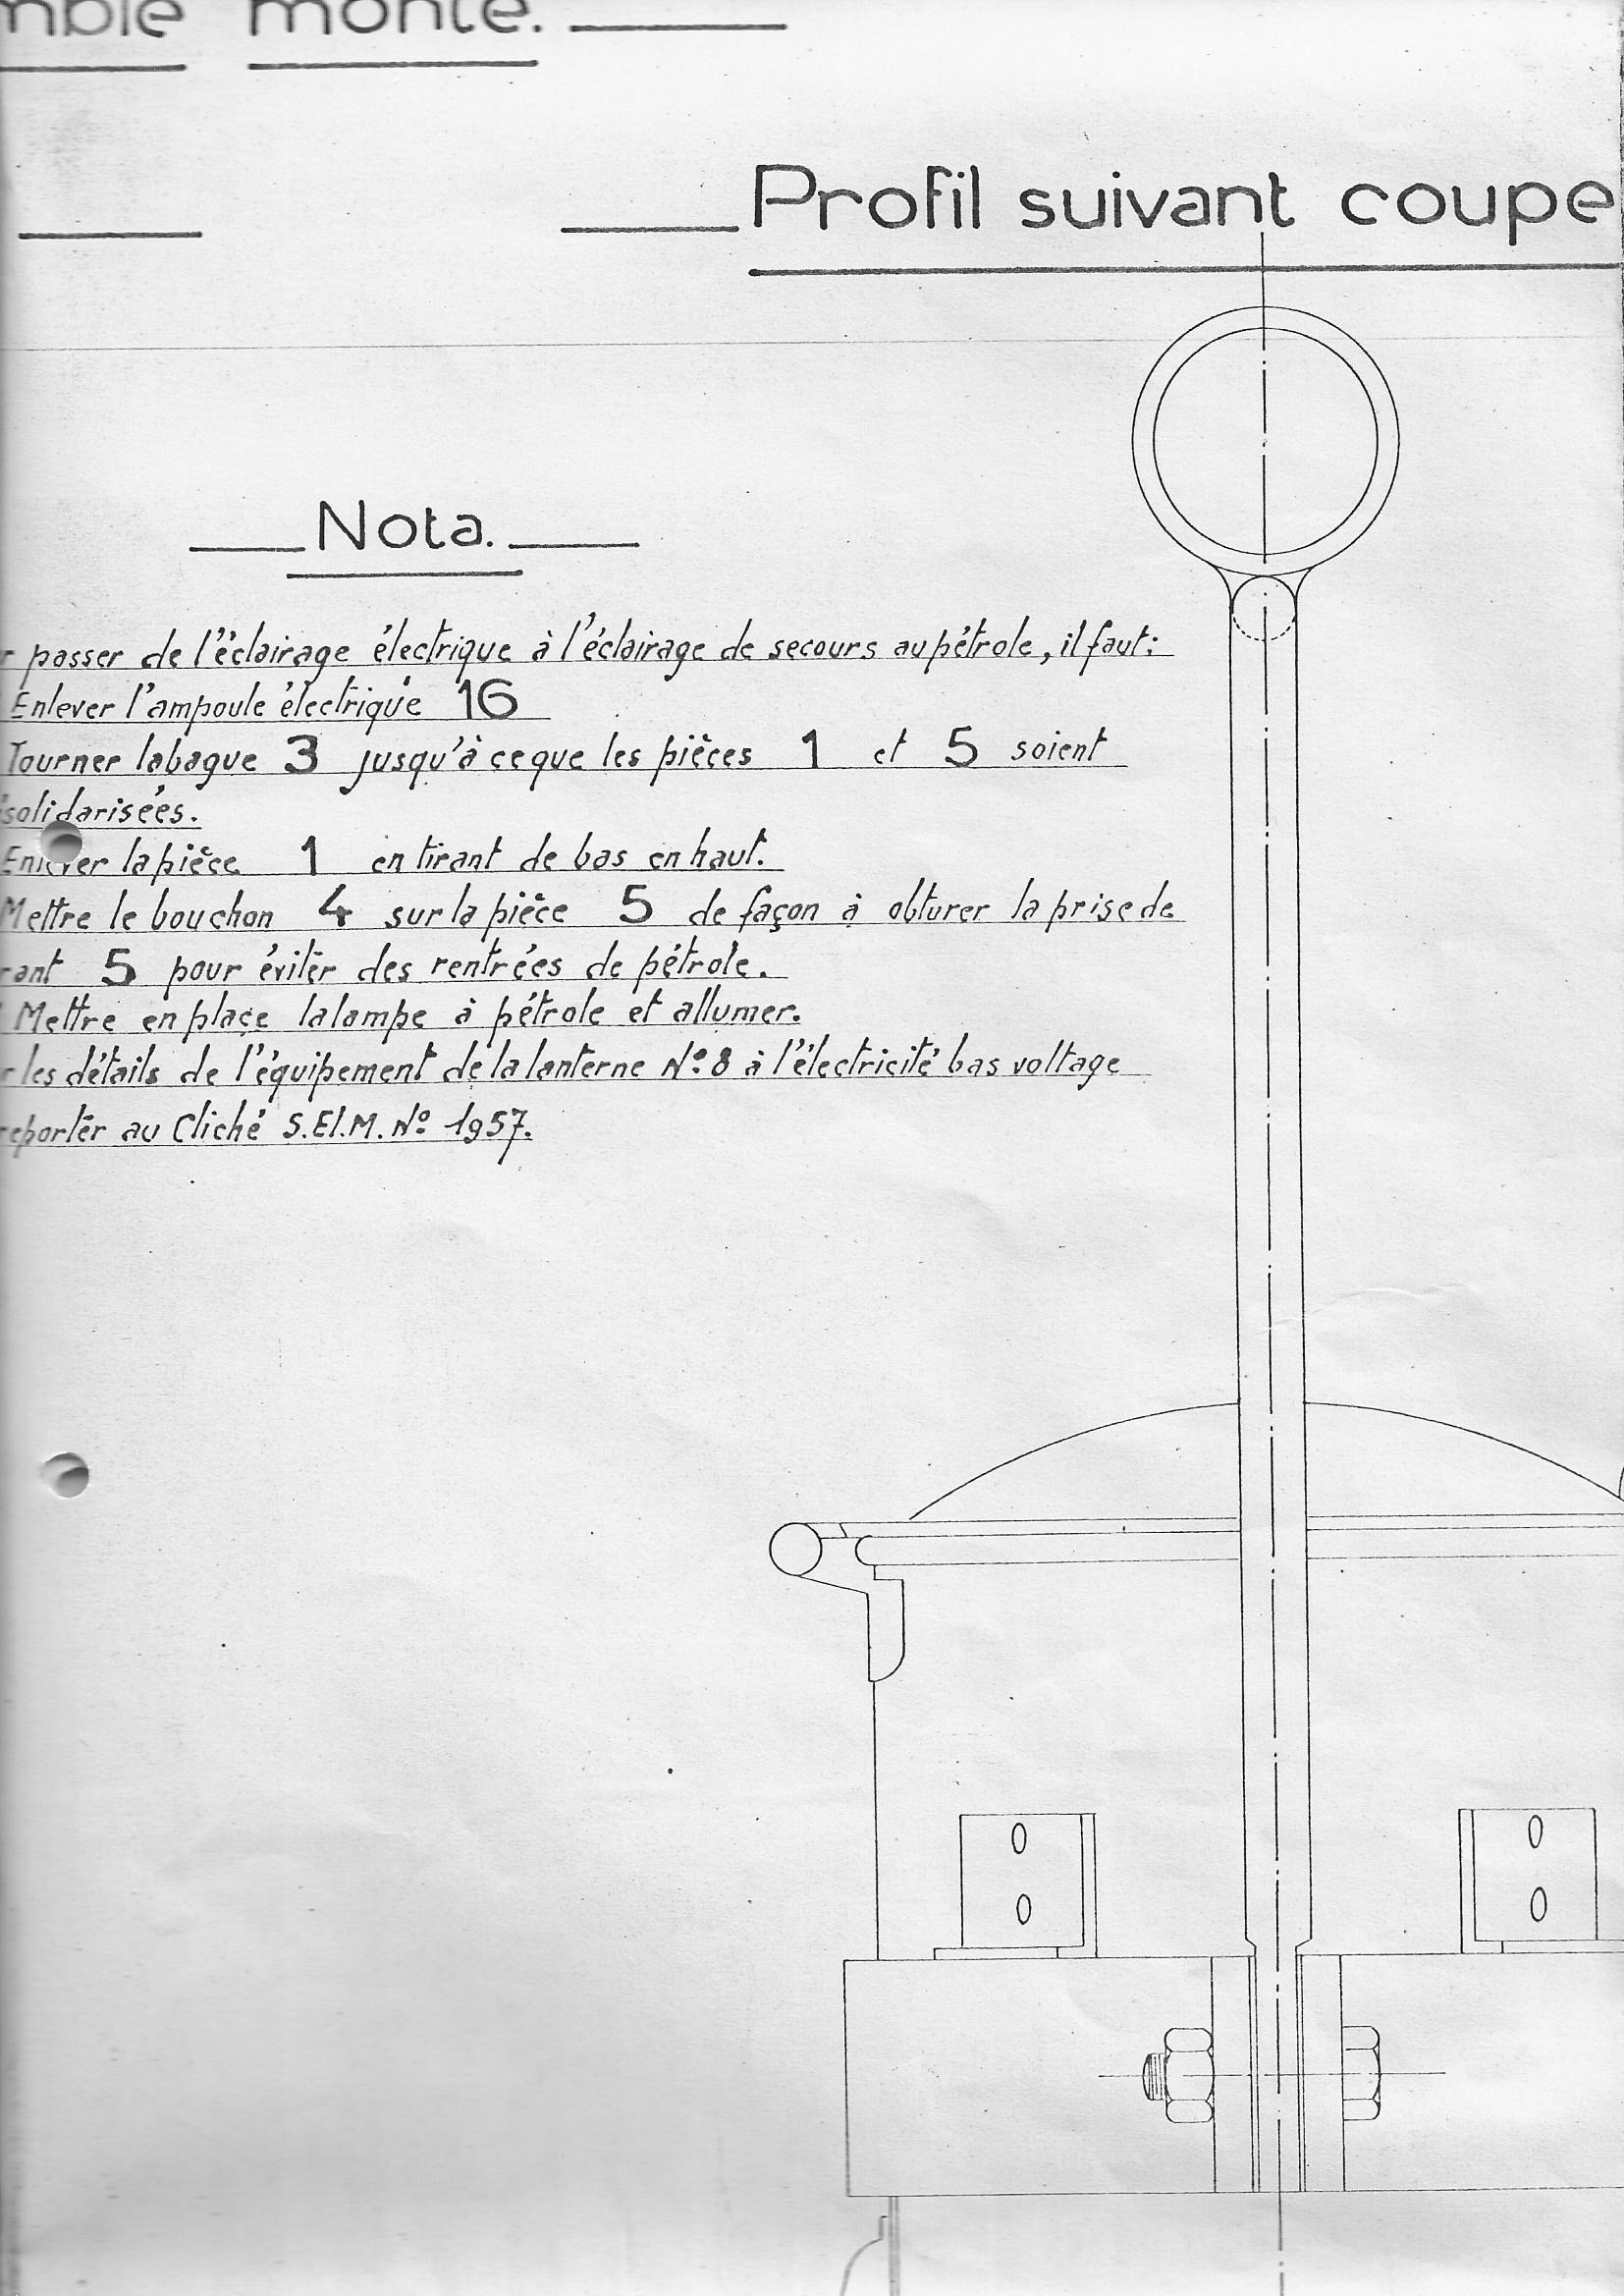 mble monté.
Profil suivant coupe
Nota.
r passer de l'éclairage électrique à l'éclairage de secours au pétrole, il faut:
Enlever l'ampoule électrique 16
Tourner la bague 3 jusqu'à ce que les pièces 1 et 5 soient
solidarisées.
Enlever la pièce 1 en tirant de bas en haut.
Mettre le bouchon 4 sur la pièce 5 de façon à obturer la prise de
rant 5 pour éviter des rentrées de pétrole.
Mettre en place la lampe à pétrole et allumer.
r les détails de l'équipement de la lanterne N° 8 à l'électricité bas voltage
reporter au Cliché S.El.M. N° 1957.